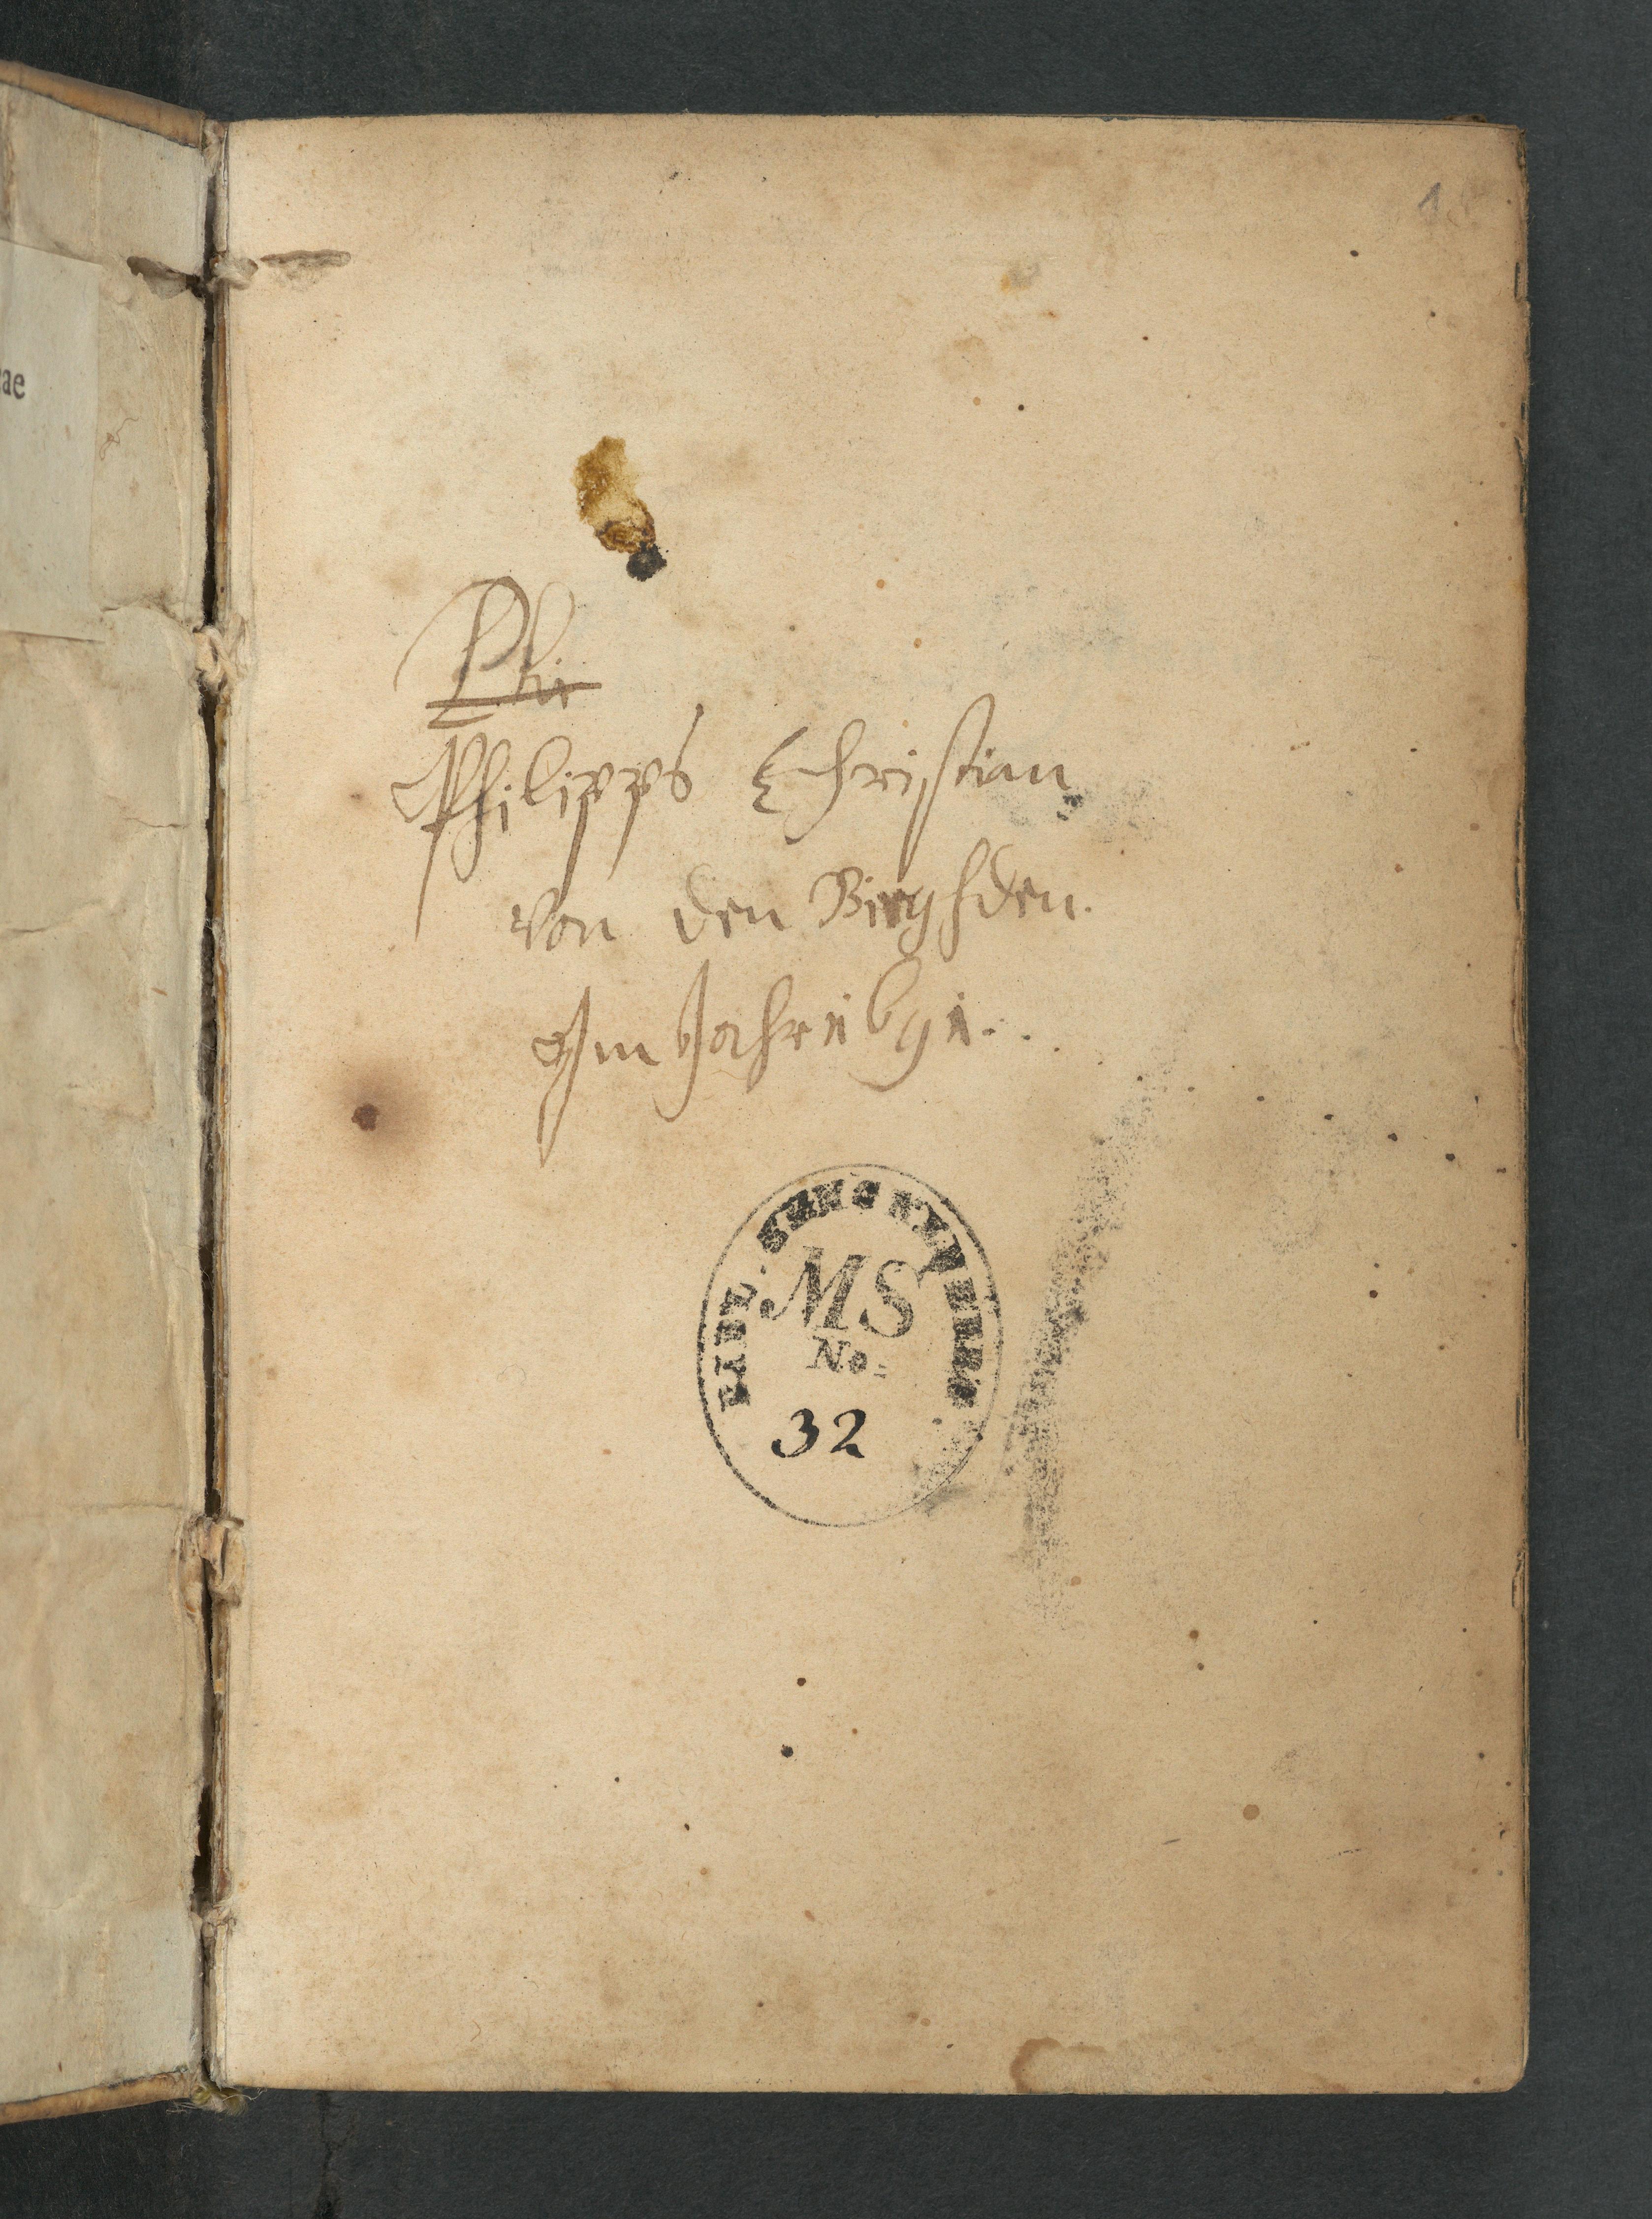 1
ae
Phi
Philipps Christian
von den Birghden.
Im Jahr 1691.
BIBL. SENCKENBERG.
MS
No:
32